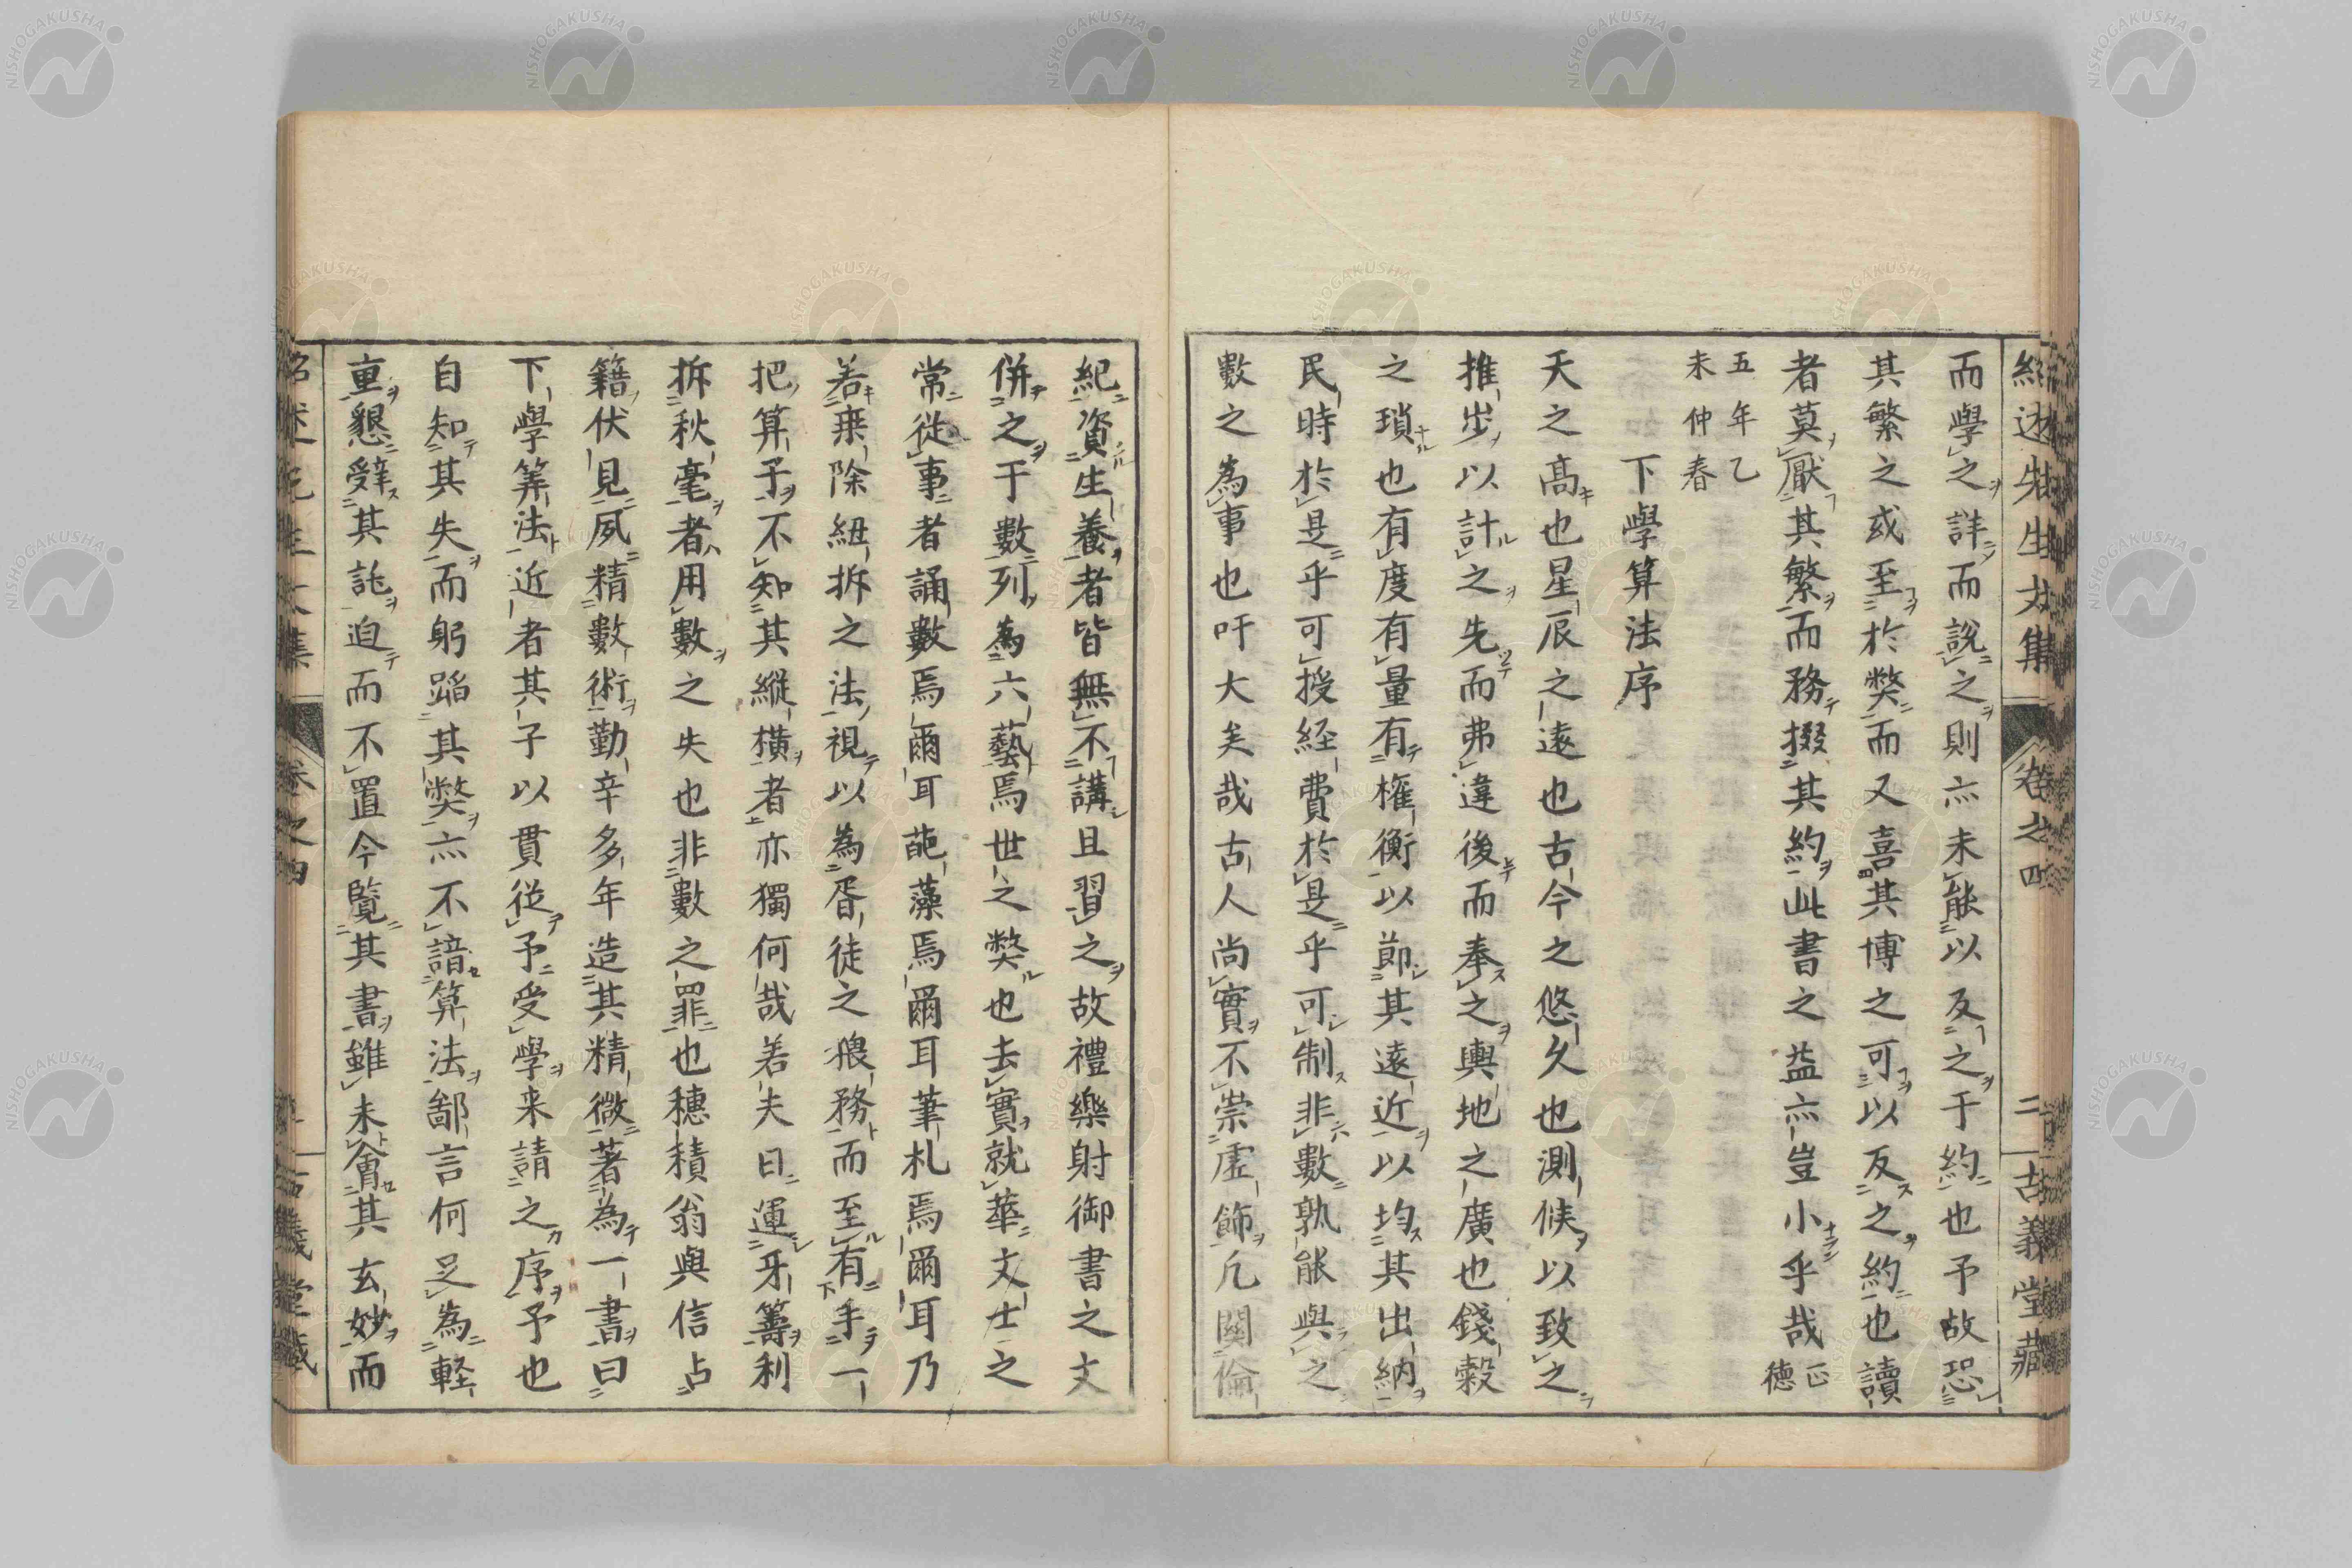 紹述先生文集 卷之四 二 古義堂藏
而學之詳而說之則亦未能以反之于約也予故恐
其繁之或至於弊而又喜其博之可以反之約也讀
者莫厭其繁而務掇其約此書之益亦豈小乎哉正德
五年乙
未仲春
下學算法序
天之高也星辰之遠也古今之悠久也測候以致之
推步以計之先而弗違後而奉之輿地之廣也錢穀
之瑣也有度有量有權衡以節其遠近以均其出納
民時於是乎可授経費於是乎可制非數孰能與之
數之為事也吁大矣哉古人尚實不崇虛飾凢關倫
紀資生養者皆無不講且習之故禮樂射御書之文
併之于數列為六藝焉世之弊也去實就華文士之
常從事者誦數焉爾耳葩藻焉爾耳筆札焉爾耳乃
若乗除紐拆之法視以為胥徒之猥務而至有手一
把算子不知其縱橫者亦獨何哉若夫曰運牙籌利
拆秋毫者用數之失也非數之罪也穗積翁與信占
籍伏見夙精數術勤辛多年造其精微著為一書曰
下學筭法近者其子以貫從予受學来請之序予也
自知其失而躬蹈其弊亦不諳算法鄙言何足為軽
重懇辤其託迫而不置今覽其書雖未會其玄妙而
紹述先生文集 卷之四 古義堂藏